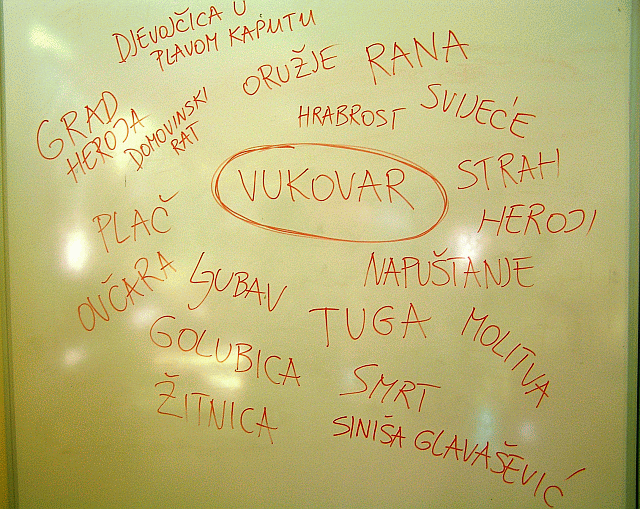 DJEVOJČICA U
PLAVOM KAPUTU
ORUŽJE
RANA
SVIJEĆE
GRAD
HEROJA
DOMOVINSKI
RAT
HRABROST
VUKOVAR
STRAH
HEROJI
PLAČ
OVČARA
LJUBAV
NAPUŠTANJE
GOLUBICA
TUGA
MOLITVA
ŽITNICA
SMRT
SINIŠA GLAVAŠEVIĆ